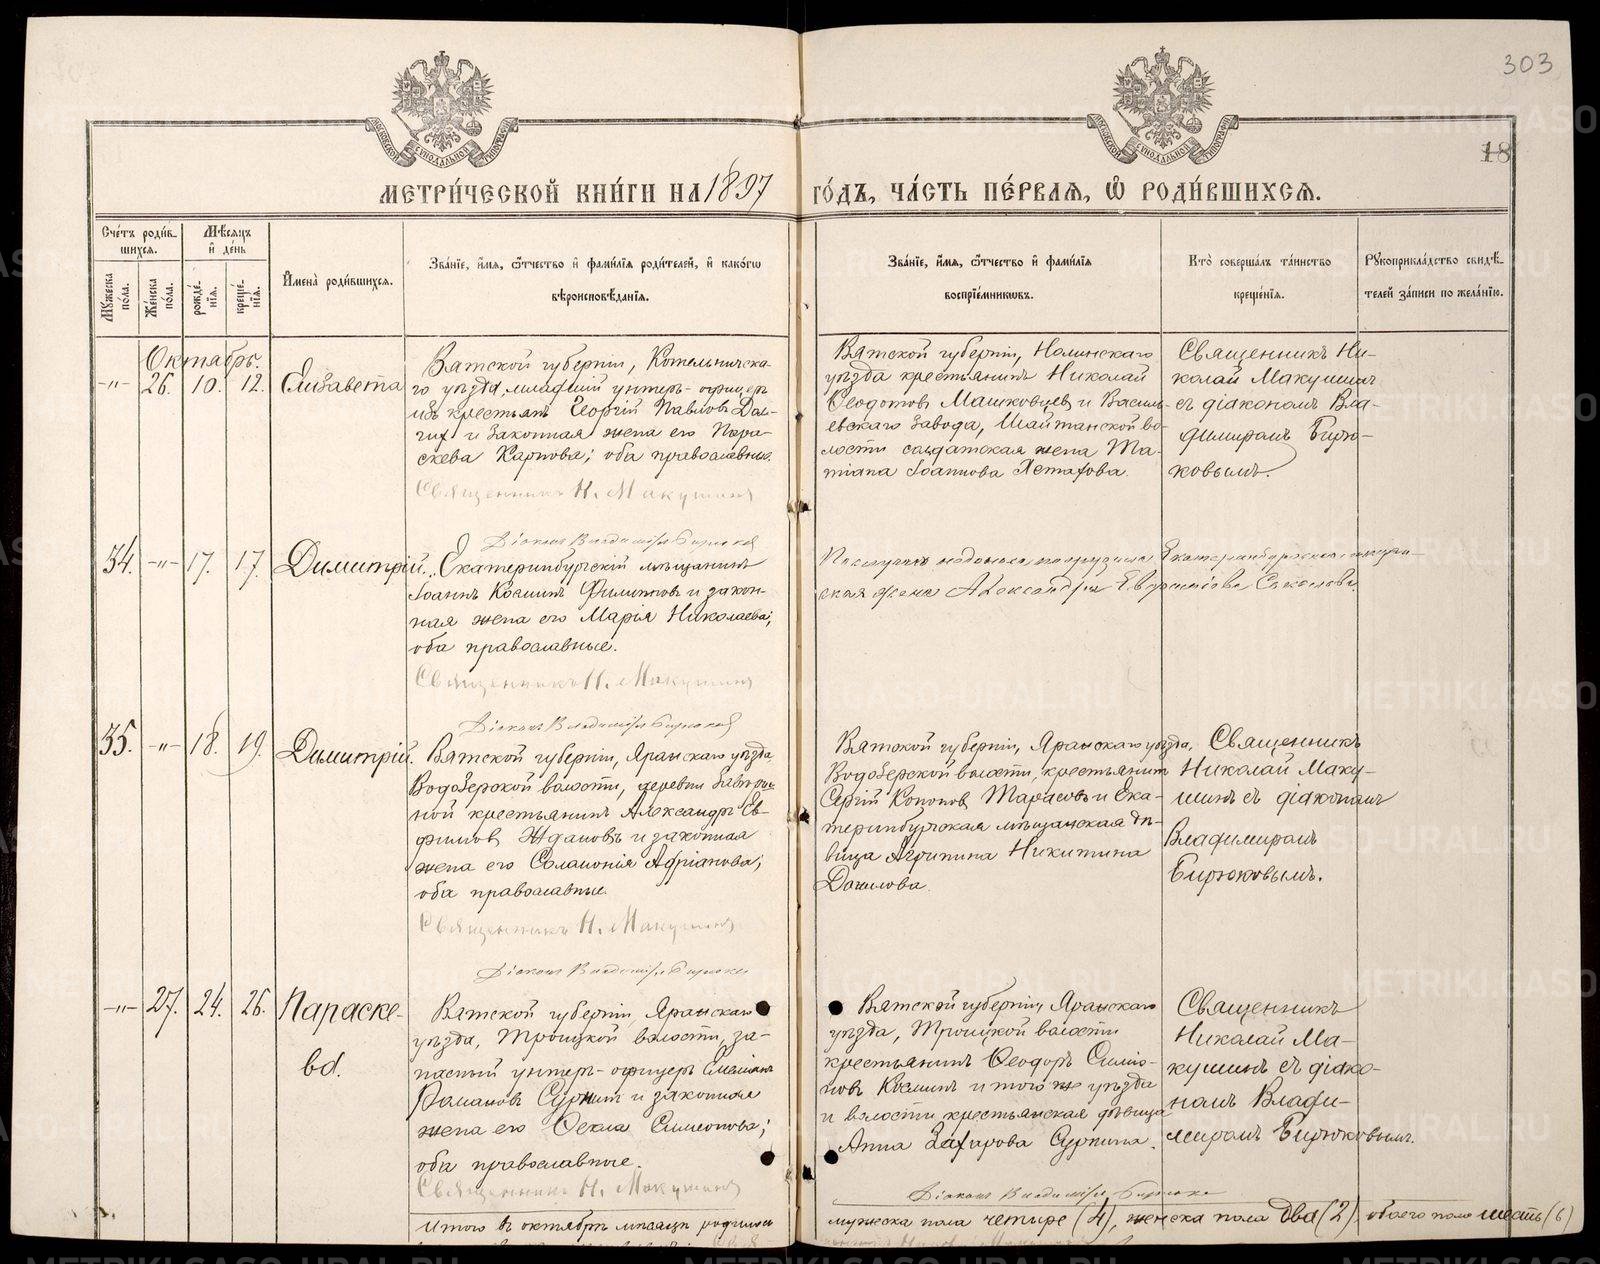 303
18
МОСКОВСКОЙ СУНОДАЛЬНОЙ ТИПОГРАФІИ
МОСКОВСКОЙ СУНОДАЛЬНОЙ ТИПОГРАФІИ
МЕТРИ́ЧЕСКОЙ КНИ́ГИ НА 1897 ГО́ДЪ, ЧА́СТЬ ПЕ́РВАЯ, Ѡ РОДИ́ВШИХСЯ.
Сче́тъ роди́в-
шихся.
Мужеска по́ла.
Женска по́ла.
Мѣ́сяцъ
и де́нь
рожде́-
нія.
креще́-
нія.
Имена̀ роди́вшихся.
Зва́ніе, и́мя, о́тчество и фами́лія роди́телей, и како́гѡ
вѣроисповѣ́данія.
Зва́ніе, и́мя, о́тчество и фами́лія
воспріе́мниковъ.
Кто̀ соверша́лъ та́инство
креще́нія.
Рукоприкла́дство свидѣ́-
телей за́писи по жела́нію.
Октябрь.
-"- 26. 10. 12. Елизавета
Вятской губерніи, Котельническа-
го уѣзда, младшій унтеръ-офицеръ
изъ крестьянъ Георгій Павловъ Дол-
гих и законная жена его Пара-
скева Карпова; оба православные.
Священникъ Н. Макушинъ
Діаконъ Владиміръ Бирюковъ
Вятской губерніи, Нолинскаго
уѣзда крестьянинъ Николай
Ѳеодотовъ Машковцевъ и Василь-
евскаго завода, Шайтанской во-
лости солдатская жена Та-
тіана Іоаннова Астафова.
Священникъ Ни-
колай Макушинъ
съ діакономъ Вла-
димиромъ Бирю-
ковымъ.
34. -"- 17. 17. Димитрій.
Екатеринбургскій мѣщанинъ
Іоаннъ Косминъ Филиповъ и закон-
ная жена его Марія Николаева;
оба православные.
Священникъ Н. Макушинъ
Діаконъ Владиміръ Бирюковъ
Екатеринбургская
жена Александра Сиколова.
35. -"- 18. 19. Димитрій.
Вятской губерніи, Яранскаго уѣзда
Водозерской волости, деревни
ной крестьянинъ Александръ Ев-
фимовъ Ждановъ и законная
жена его Соломонія Адріанова;
оба православные.
Священникъ Н. Макушинъ
Діаконъ Владиміръ Бирюковъ
Вятской губерніи, Яранскаго уѣзда,
Водозерской волости, крестьянинъ
Сергій Кононовъ Тарасовъ и Ека-
теринбургская мѣщанская дѣ-
вица Агрипина Никитина
Данилова.
Священникъ
Николай Маку-
шинъ съ діакономъ
Владимиромъ
Бирюковымъ.
-"- 27. 24. 26. Параске-
ва.
Вятской губерніи, Яранскаго
уѣзда, Троицкой волости, за-
пасный унтеръ-офицеръ Емеліанъ
Романовъ Суркинъ и законная
жена его Ѳекла Симеонова;
оба православные.
Священникъ Н. Макушинъ
Діаконъ Владиміръ Бирюковъ
Вятской губерніи, Яранскаго
уѣзда, Троицкой волости
крестьянинъ Ѳеодоръ Симео-
новъ Косминъ и того же уѣзда
и волости крестьянская дѣвица
Анна Захарова Суркина.
Священникъ
Николай Ма-
кушинъ съ діако-
номъ Влади-
миромъ Бирюковымъ.
Итого въ октябрѣ мѣсяцѣ родилось
мужеска пола четыре (4), женска пола два (2), обоего пола шесть (6)
METRIKI.GASO-URAL.RU